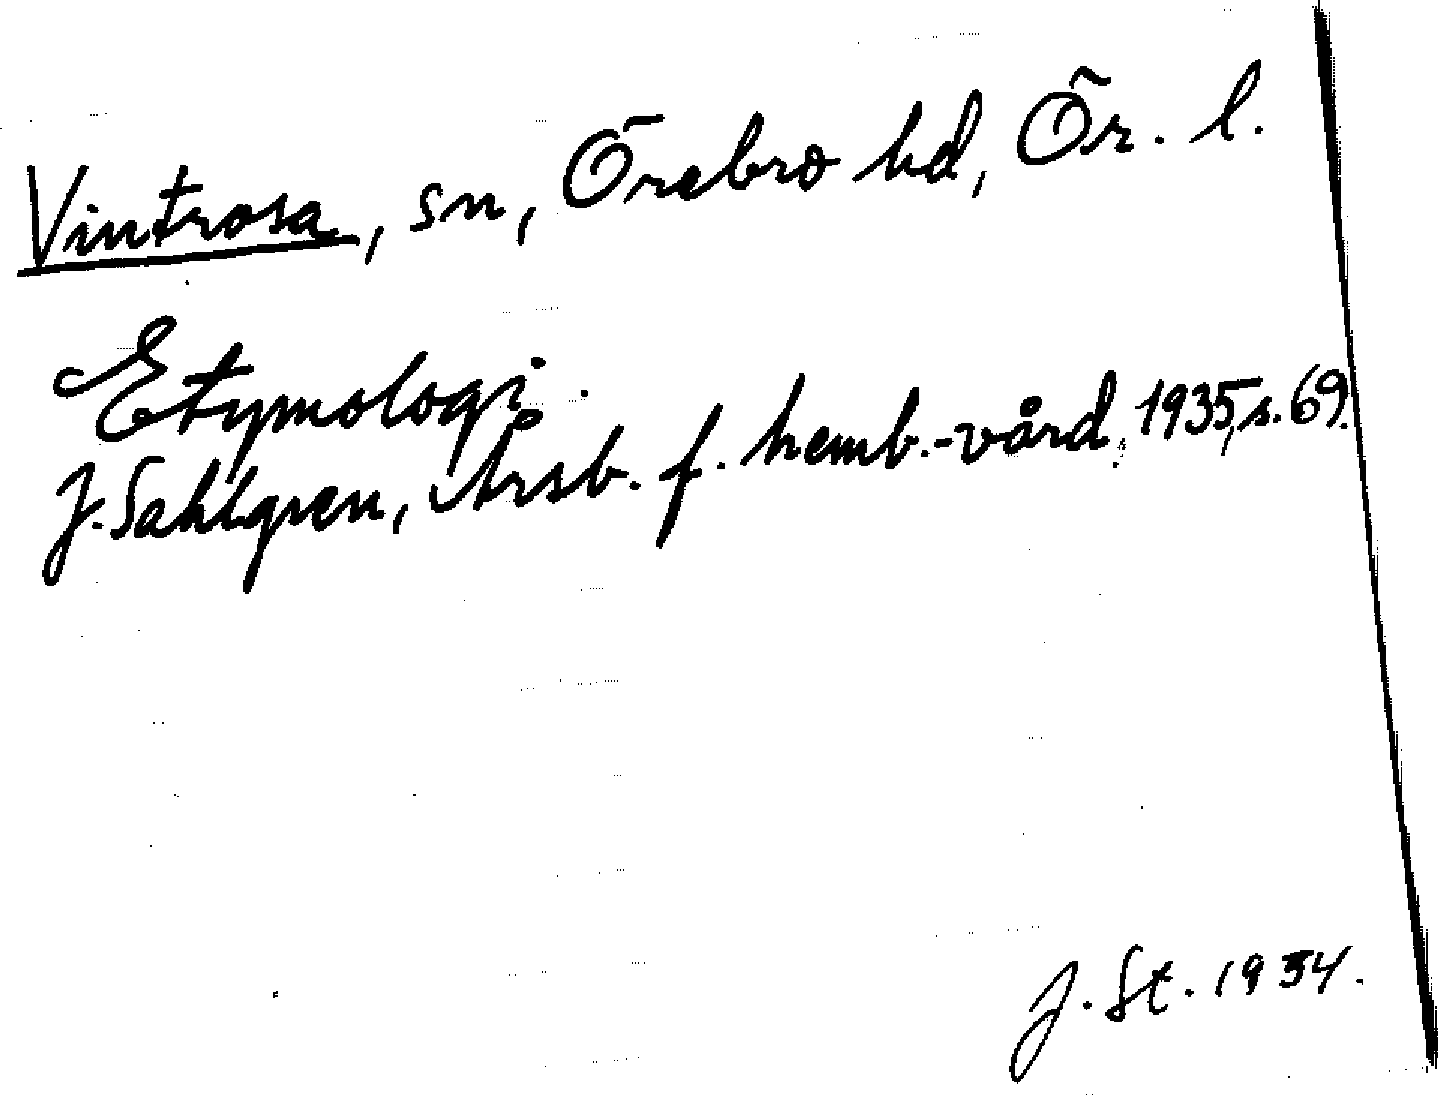 Vintrosa, sn, Örebro hd, Ör. l.
Etymologi.
J. Sahlgren, Årsb. f. hemb.-vård, 1935, s. 69.
J. St. 1954.